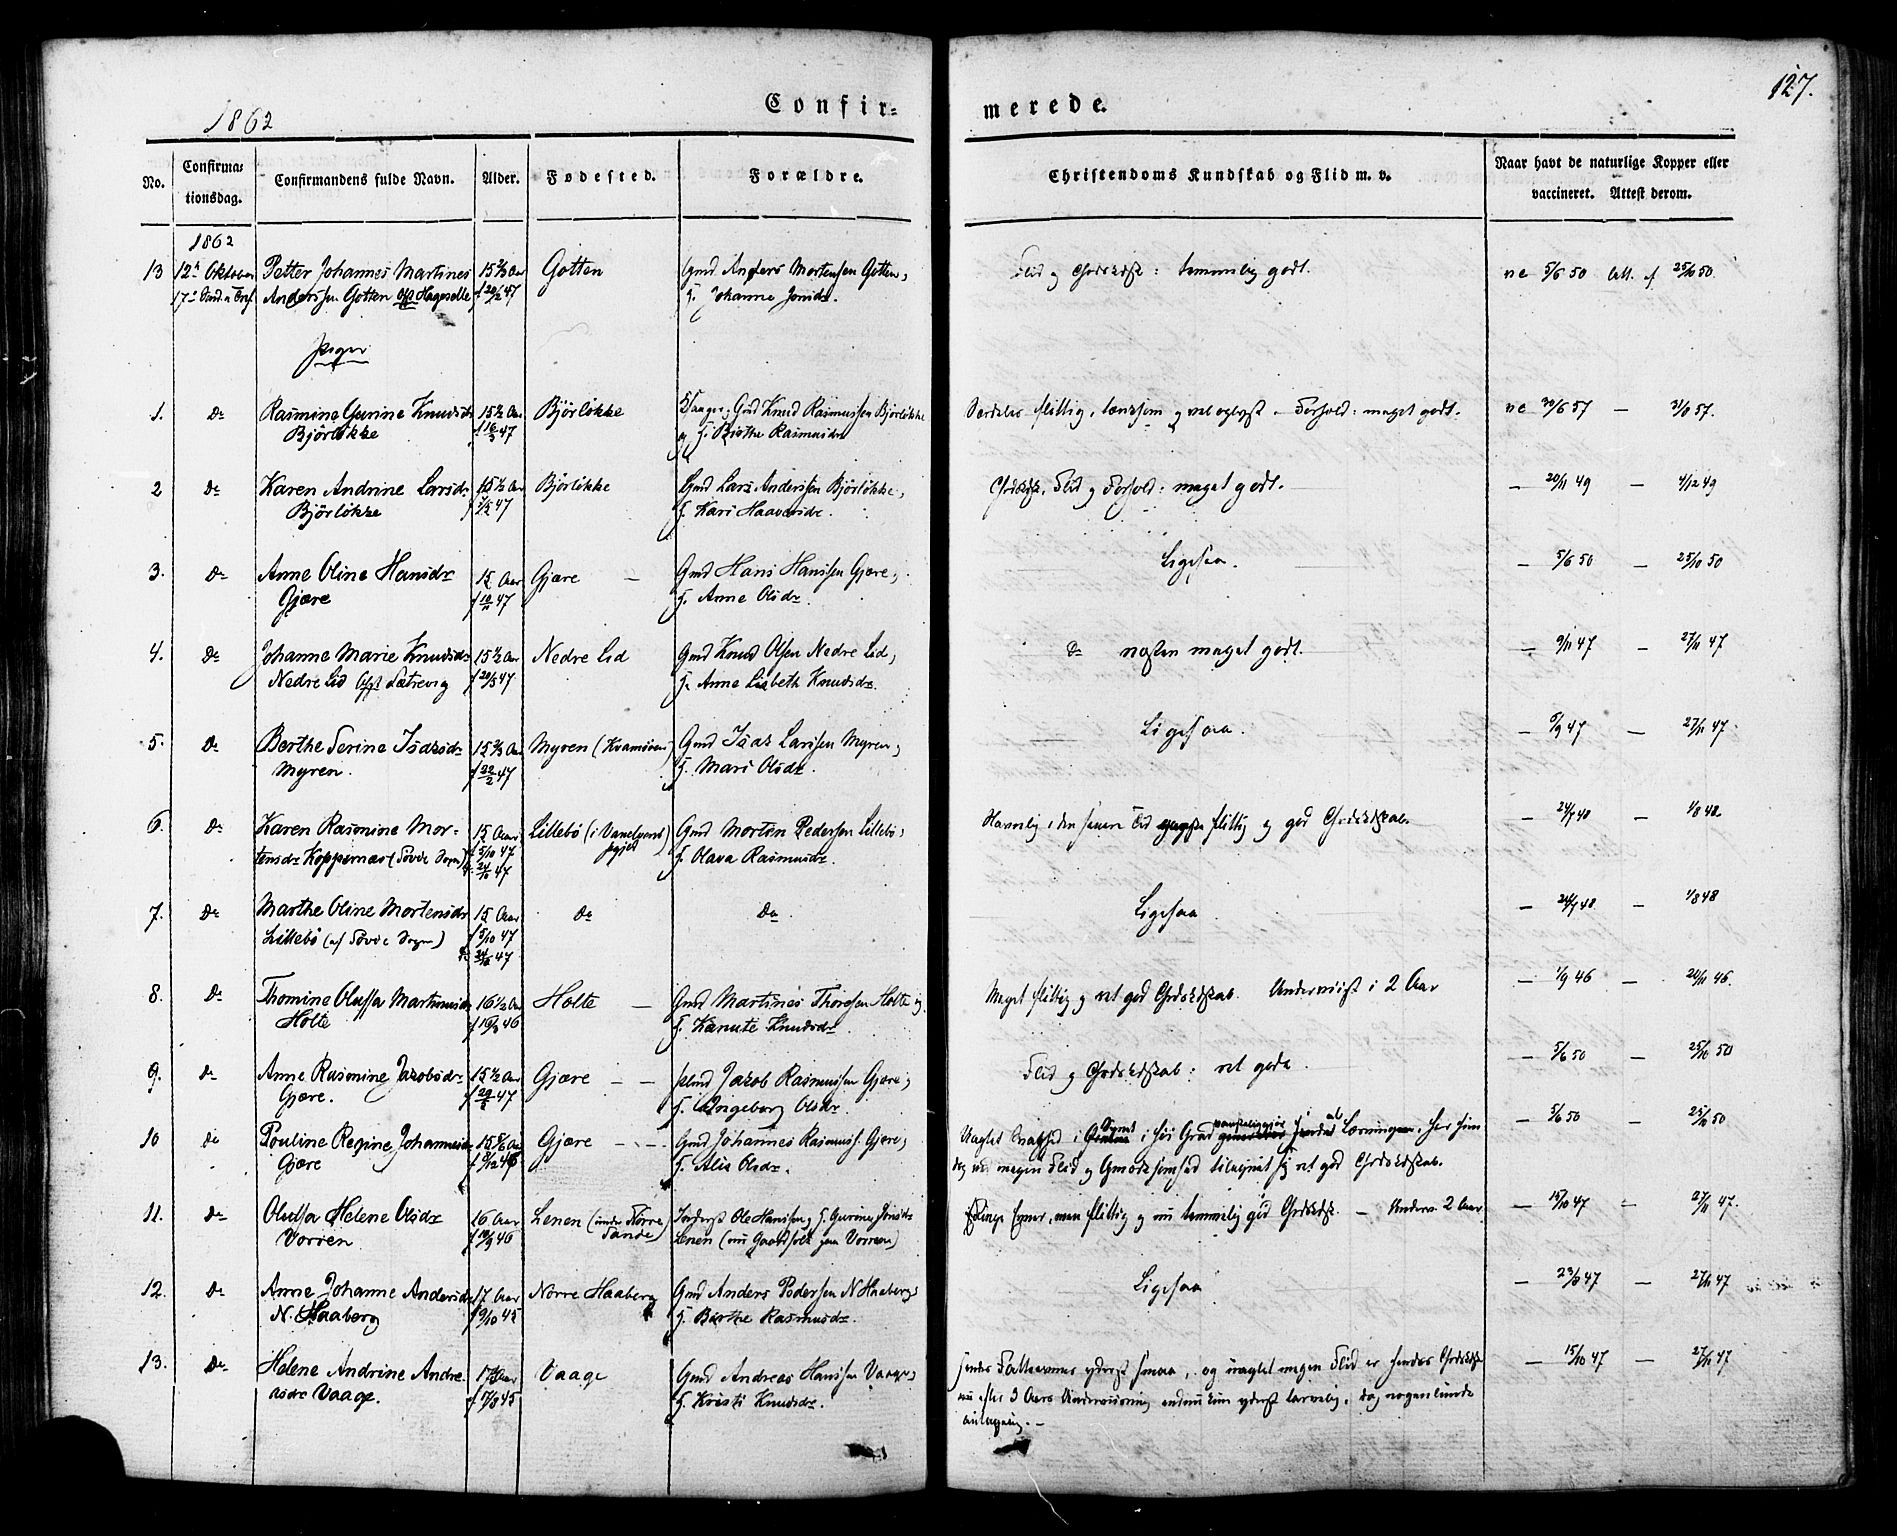 127.
1862
Confir=
merede.
No.
Confirma=
tionsdag.
Confirmandens fulde Navn.
Alder.
Fødested.
Forældre.
Christendoms Kundskab og Flid m. v.
Naar havt de naturlige Kopper eller
vaccineret. Attest derom.
1862
13 12te Oktober Petter Johannes Martines 15 2/3 Aar Gotten Gmd Anders Mortensen Gotten,
Anderssen Gotten Hageselle f 20/2 47 H. Johanne Jonsdr.
Flid og Chrdkdsk: temmelig godt. vc 5/6 50 Att. af 25/10 50.
Piger
1. Do Rasmine Gurine Knudsdr 15 1/2 Aar Björløkke Gmd Knud Rasmussen Björløkke
Björløkke f 16/3 47 og H. Birthe Rasmusdr
flittig, lærsom og vel oplyst - Forhold: meget godt. vc 30/6 57 — 31/8 57.
2 Do Karen Andrine Larsdr 15 1/2 Aar Björløkke Gmd Lars Anderssen Björløkke,
Björløkke 47 H. Kari Haaversdr.
Chrdkdsk, Flid og Forhold: meget godt. — 20/11 49 — 4/12 49
3. Do Anne Oline Hansdr 15 Aar Gjære — Gmd Hans Hanssen Gjære,
Gjære f 10/11 47 H. Anne Olsdr.
Ligesaa. — 5/6 50 — 25/10 50
4. Do Johanne Marie Knudsdr 15 1/2 Aar Nedre Lid Gmd Knud Olsen Nedre Lid,
Nedre Lid Sætrevig f 20/3 47 H. Anne Lisbeth Knudsdr.
Do næsten meget godt. — 9/11 47 — 27/11 47
5. Do Berthe Serine Isaksdr 15 2/3 Aar Myren (Kvamsöen) Gmd Isak Larssen Myren,
Myren. f 22/2 47 H. Mari Olsdr.
Ligesaa. — 6/9 47 — 27/11 47.
6. Do Karen Rasmine Mor- 15 Aar Lillebö (i Vanelvens Gmd Morten Pedersen Lillebö,
tensdr Koppernæs (Sövde Sogn) f 5/10 47 Prgjeld) H. Olava Rasmusdr
24/10 47
Navnlig i den senere Tid flittig og god Chrdkdskab. — 24/7 48 — 1/8 48
7. Do Marthe Oline Mortensdr 15 Aar do Do
Lillebö (af Sövde Sogn) f 5/10 47
24/10 47
Ligesaa — 24/7 48 — 1/8 48
8. Do Thomine Oluffa Martinusdr 16 1/2 Aar Holte — Gmd Martines Thoresen Holte og
Holte f 16/3 46 H. Kanute Knudsdr
Meget flittig og ret god Chrdskdskab. Underviist i 2 Aar — 1/9 46 — 20/11 46.
9. Do Anne Rasmine Jakobsdr 15 1/2 Aar Gjære — — Jakob Rasmussen Gjære,
Gjære. 47 H. Ingeborg Olsdr.
Flid og Chrdskdskab: ret gode. — 5/6 50 — 25/10 50
10 do Pouline Regine Johannesdr 15 5/6 Aar Gjære — — Gmd Johannes Rasmuss. Gjære,
Gjære 46 H. Alis Olsdr.
Uagtet Svaghed i Synet i höi Grad vanskeliggjör hende al Læsningen, har hun
dog ved megen Flid og Opmærksomhed tilegnet sig ret god Chrdskdskab. — 5/6 50 25/10 50
11. Do Oluffa Helene Olsdr 16 Aar Lenen (under Nörre Ole Hanssen og H. Gurine Jonsdr
Vorren f 10/9 46 Sande) Lenen (nu paa Vorren)
Ringe Evner, men flittig og nu temmelig god Chrdskdsk. — Underv. 2 Aar. — 15/10 47 — 27/11 47.
12. Do Anne Johanne Andersdr 17 Aar Nörre Haaberg Gmd Anders Pedersen N. Haaberg,
N. Haaberg f 9/10 45 H. Berthe Rasmusdr.
Ligesaa — 23/9 47 — 27/11 47
13. Do Helene Andrine Andre- Vaage Gmd Andreas Hanssen Vaage,
asdr Vaage. 45 H. Kristi Knudsdr.
Hendes Fatteevner yderst smaa, og uagtet megen Flid er hendes Chrdskdsk
nu efter 3 Aars Underviisning endnu kun yderst tarvelig, dog nogenlunde
antagelig. — — 15/10 47 — 27/11 47